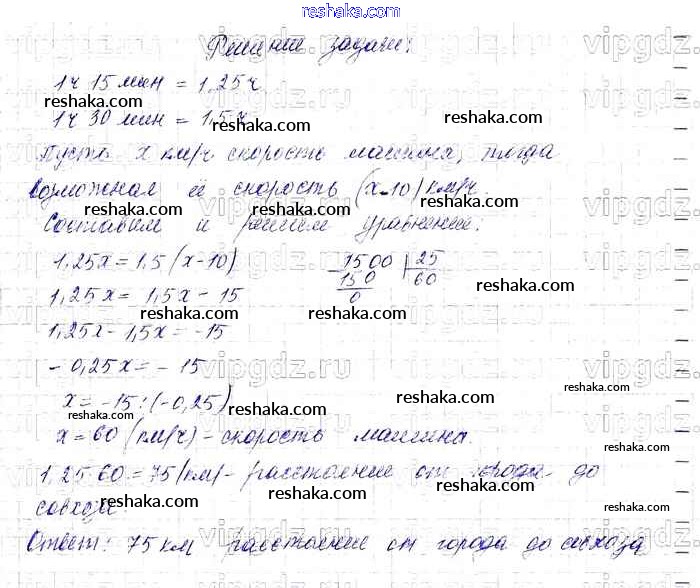 reshaka.com
Решение задачи:
1ч 15 мин = 1,25ч
reshaka.com reshaka.com
1ч 30 мин = 1,5ч
reshaka.com reshaka.com
Пусть x км/ч скорость машины, тогда
возможная её скорость (x-10) км/ч.
reshaka.com reshaka.com reshaka.com
Составим и решим уравнение.
1,25x = 1,5 (x-10)
1500 | 25
150 60
0
1,25x = 1,5x - 15
reshaka.com reshaka.com reshaka.com
1,25x - 1,5x = -15
- 0,25x = - 15
reshaka.com
x = -15 : (-0,25)
reshaka.com reshaka.com reshaka.com
x = 60 (км/ч) - скорость машины.
reshaka.com reshaka.com
1,25 60 = 75 (км) - расстояние от города до
совхоза.
reshaka.com reshaka.com reshaka.com
Ответ: 75 км расстояние от города до совхоза
reshaka.com reshaka.com
vipgdz.ru